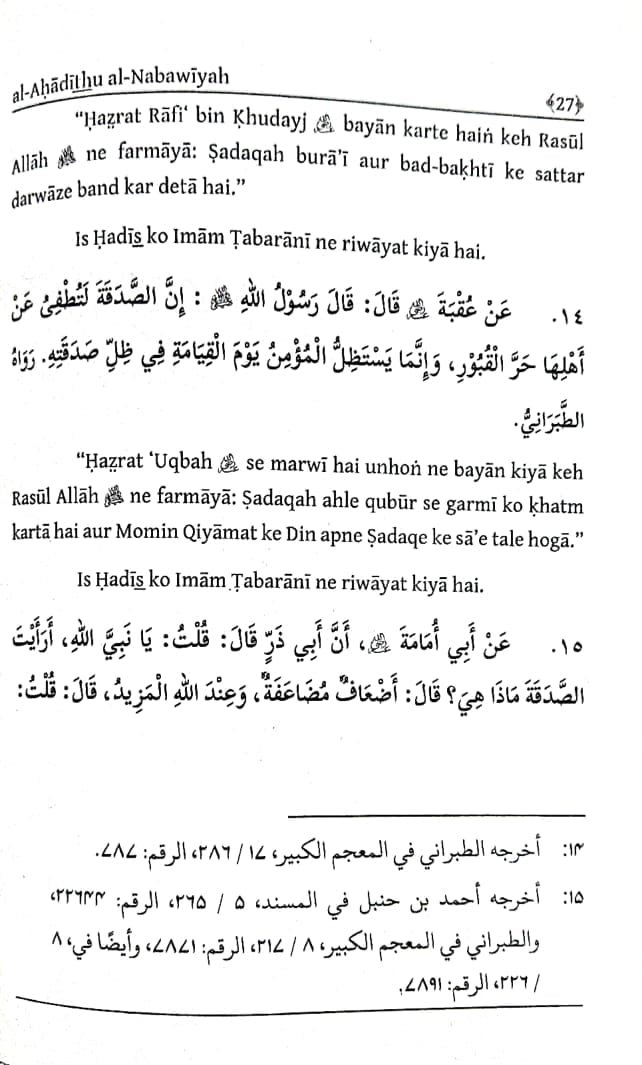 al-Aḥādīthu al-Nabawīyah
﴾27﴿
“Ḥaẓrat Rāfi‘ bin Ḳhudayj ؓ bayān karte haiṅ keh Rasūl
Allāh ﷺ ne farmāyā: Ṣadaqah burā’ī aur bad-baḳhtī ke sattar
darwāze band kar detā hai.”
Is Ḥadīs̲ ko Imām Ṭabarānī ne riwāyat kiyā hai.
١٤. عَنْ عُقْبَةَ ؓ قَالَ: قَالَ رَسُوْلُ اللهِ ﷺ : إِنَّ الصَّدَقَةَ لَتُطْفِئُ عَنْ
أَهْلِهَا حَرَّ الْقُبُوْرِ، وَإِنَّمَا يَسْتَظِلُّ الْمُؤْمِنُ يَوْمَ الْقِيَامَةِ فِي ظِلِّ صَدَقَتِهِ. رَوَاهُ
الطَّبَرَانِيُّ.
“Ḥaẓrat ‘Uqbah ؓ se marwī hai unhoṅ ne bayān kiyā keh
Rasūl Allāh ﷺ ne farmāyā: Ṣadaqah ahle qubūr se garmī ko ḳhatm
kartā hai aur Momin Qiyāmat ke Din apne Ṣadaqe ke sā’e tale hogā.”
Is Ḥadīs̲ ko Imām Ṭabarānī ne riwāyat kiyā hai.
١٥. عَنْ أَبِي أُمَامَةَ ؓ، أَنَّ أَبِي ذَرٍّ قَالَ: قُلْتُ: يَا نَبِيَّ اللهِ، أَرَأَيْتَ
الصَّدَقَةَ مَاذَا هِيَ؟ قَالَ: أَضْعَافٌ مُضَاعَفَةٌ، وَعِنْدَ اللهِ الْمَزِيدُ، قَالَ: قُلْتُ:
١٤: أخرجه الطبراني في المعجم الكبير، ١٧ / ٢٨٦، الرقم: ٧٨٧.
١٥: أخرجه أحمد بن حنبل في المسند، ٥ / ٢٦٥، الرقم: ٢٢٦٤٤،
والطبراني في المعجم الكبير، ٨ / ٢١٧، الرقم: ٧٨٧١، وأيضًا في، ٨
/ ٢٢٦، الرقم: ٧٨٩١.